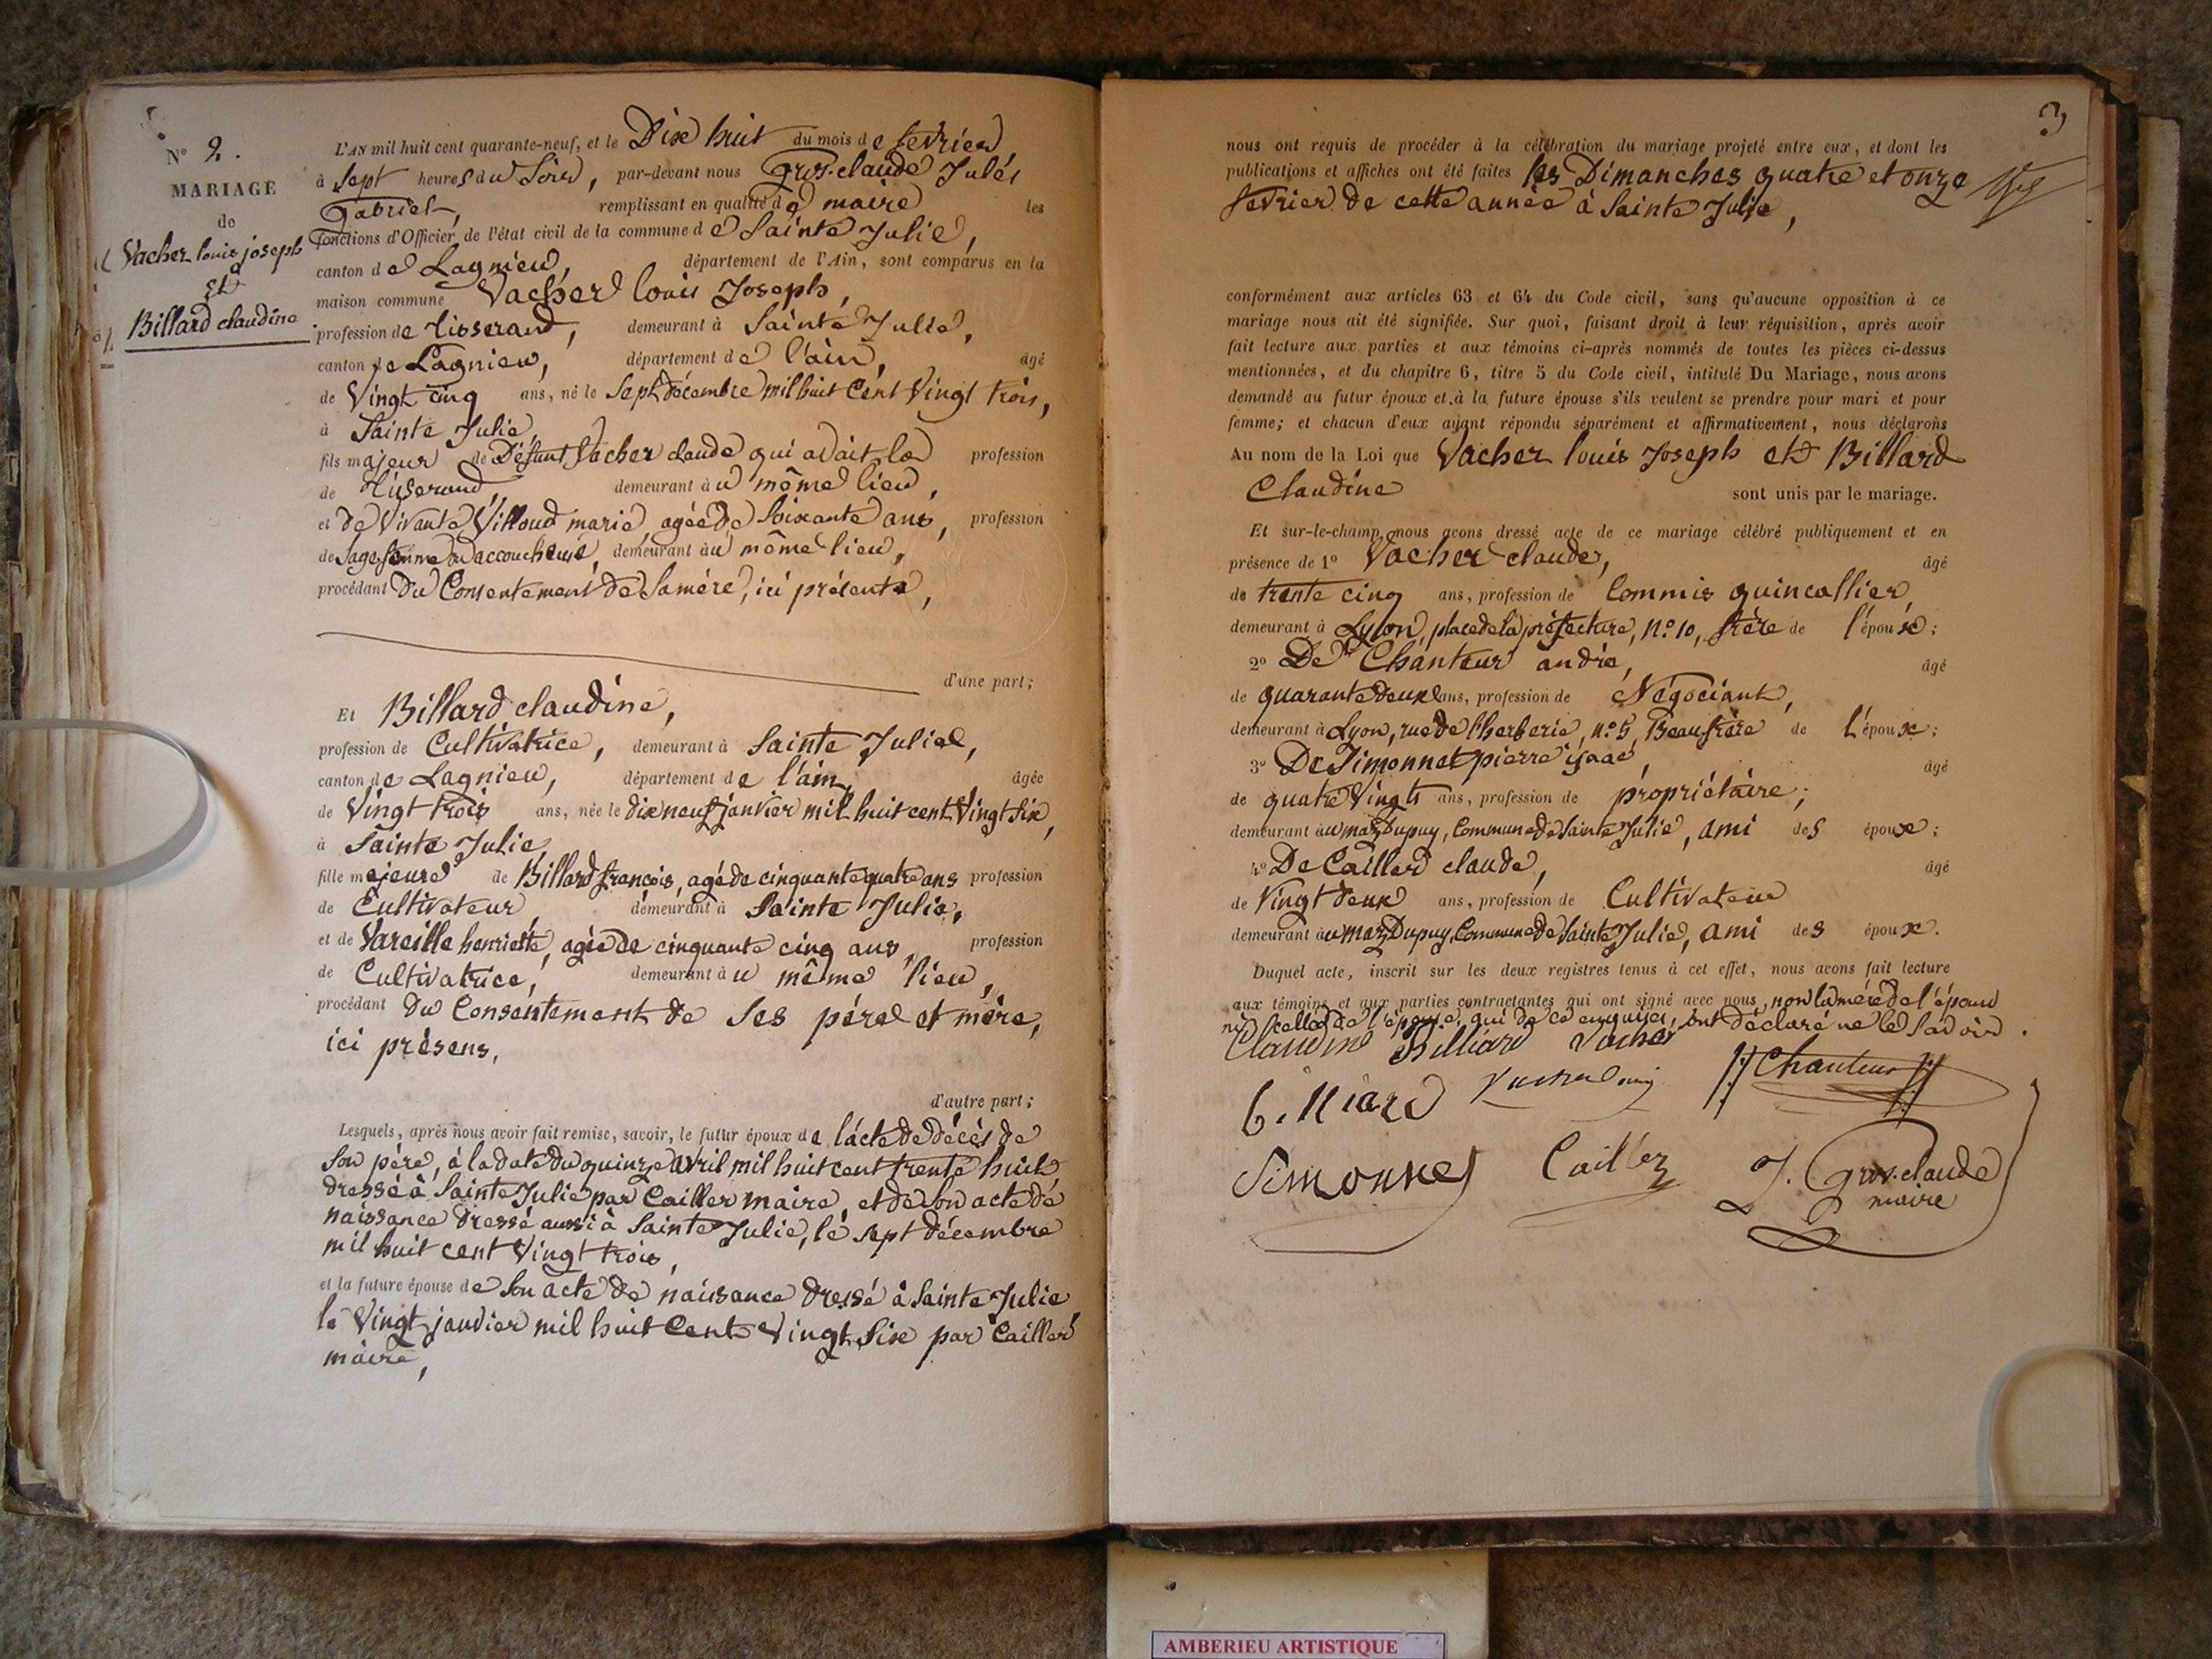 Nº 2.
MARIAGE
de
Vacher louis joseph
et
Billard claudine
L'AN mil huit cent quarante-neuf, et le Dix huit du mois de fevrier
à Sept heures du Soir, par-devant nous Gros-claude Jules
Gabriel, remplissant en qualité de maire les
fonctions d'Officier de l'état civil de la commune de Sainte Julie,
canton de Lagnieu, département de l'Ain, sont comparus en la
maison commune Vacher louis Joseph,
profession de tisserand, demeurant à Sainte Julie,
canton de Lagnieu, département de l'ain, âgé
de Vingt cinq ans, né le Sept décembre mil huit Cent Vingt trois,
à Sainte Julie,
fils majeur de Défunt Vacher claude qui avait la profession
de tisserand, demeurant àu même lieu,
et de Vivante Villoud marie, agée de Soixante ans, profession
de Sage femme ou accoucheuse, demeurant àu même lieu,
procédant Du Consentement de Samére, ici présente,
d'une part;
Et Billard claudine,
profession de Cultivatrice, demeurant à Sainte Julie,
canton de Lagnieu, département de l'ain, âgée
de Vingt trois ans, née le dix neuf janvier mil huit cent Vingt Six,
à Sainte Julie,
fille majeure de Billard françois, agé de cinquante quatre ans profession
de Cultivateur, demeurant à Sainte Julie,
et de Vareille henriette, agée de cinquante cinq ans, profession
de Cultivatrice, demeurant àu même lieu,
procédant du Consentement de Ses pére et mère,
ici présens,
d'autre part;
Lesquels, après nous avoir fait remise, savoir, le futur époux de l'acte de décès de
Son pére, à la date du quinze avril mil huit cent trente huit
dressé à Sainte Julie par Cailler maire, et de Son acte de
naissance dressé aussi à Sainte Julie, le Sept décembre
mil huit cent Vingt trois,
et la future épouse de Son acte de naissance dressé à Sainte Julie
le Vingt janvier mil huit Cent Vingt Six par Cailler
maire,
3
nous ont requis de procéder à la célébration du mariage projeté entre eux, et dont les
publications et affiches ont été faites les Dimanches quatre et onze
fevrier de cette année à Sainte Julie,
conformément aux articles 63 et 64 du Code civil, sans qu'aucune opposition à ce
mariage nous ait été signifiée. Sur quoi, faisant droit à leur réquisition, après avoir
fait lecture aux parties et aux témoins ci-après nommés de toutes les pièces ci-dessus
mentionnées, et du chapitre 6, titre 5 du Code civil, intitulé Du Mariage, nous avons
demandé au futur époux et à la future épouse s'ils veulent se prendre pour mari et pour
femme; et chacun d'eux ayant répondu séparément et affirmativement, nous déclarons
Au nom de la Loi que Vacher louis Joseph et Billard
Claudine sont unis par le mariage.
Et sur-le-champ nous avons dressé acte de ce mariage célébré publiquement et en
présence de 1º Vacher claude, âgé
de trente cinq ans, profession de Commis quincallier,
demeurant à Lyon, place de la préfecture, nº 10, frère de l'époux;
2º De Chanteur andré, âgé
de quarante deux ans, profession de Négociant,
demeurant à Lyon, rue de l'herberie, nº 5, Beaufrère de l'époux;
3º De Simonnet pierre isaac, âgé
de quatre Vingts ans, profession de propriétaire;
demeurant àu maz Dupuy, Commune de Sainte Julie, ami des époux;
4º De Cailler claude, âgé
de Vingt deux ans, profession de Cultivateur
demeurant àu maz Dupuy, Commune de Sainte Julie, ami des époux.
Duquel acte, inscrit sur les deux registres tenus à cet effet, nous avons fait lecture
aux témoins et aux parties contractantes qui ont signé avec nous, non la mére de l'époux
ni celle de l'épouse, qui de ce enquises, ont déclaré ne le Savoir.
Claudine Billiard Vacher
billiard Chanteur
Simonnet Cailler J. Gros-claude
maire
AMBERIEU ARTISTIQUE